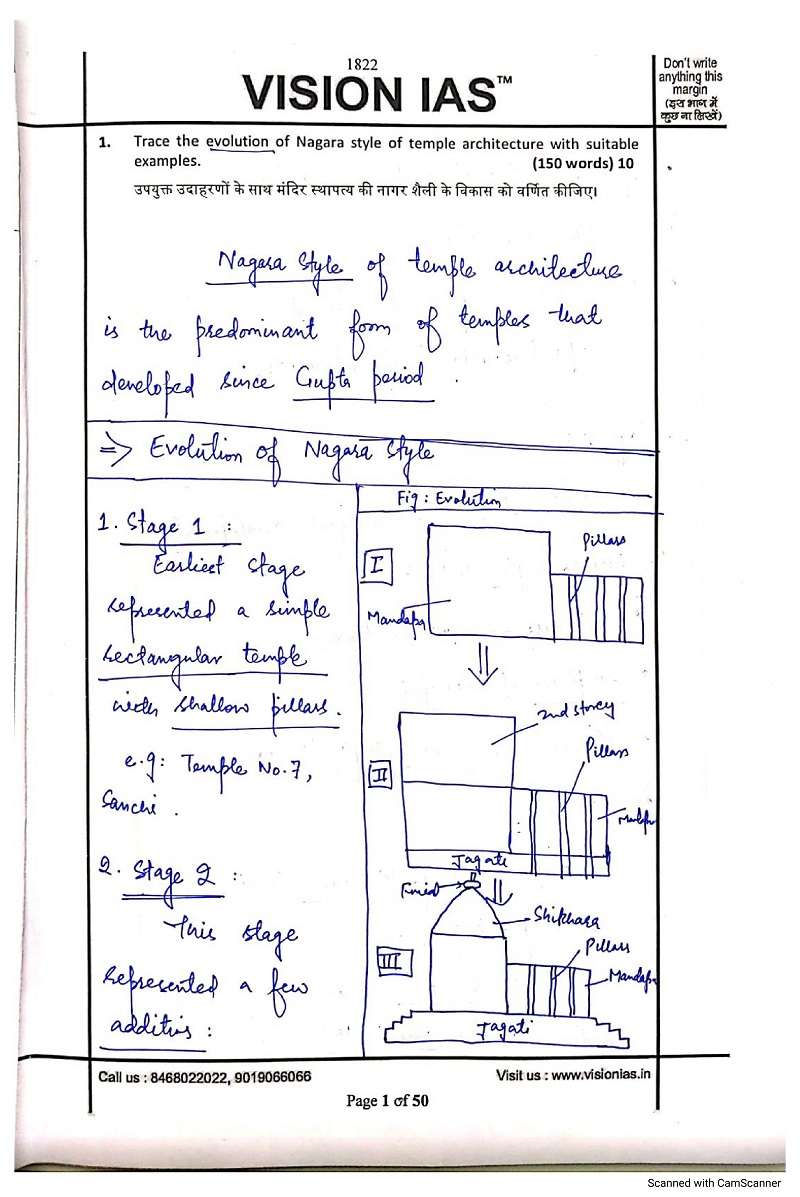 1822
VISION IAS™
Don't write
anything this
margin
(इस भाग में
कुछ ना लिखें)
1. Trace the evolution of Nagara style of temple architecture with suitable
examples. (150 words) 10
उपयुक्त उदाहरणों के साथ मंदिर स्थापत्य की नागर शैली के विकास को वर्णित कीजिए।
Nagara Style of temple architecture
is the predominant form of temples that
developed since Gupta period.
=> Evolution of Nagara Style
1. Stage 1 :
Earliest stage
represented a simple
rectangular temple
with shallow pillars.
e.g: Temple No.7,
Sanchi.
2. Stage 2 :
This stage
represented a few
additins :
Fig : Evolution
I
Pillars
Mandapa
II
2nd storey
Pillars
Jagati
III
Finial
Shikhara
Pillars
Mandapa
Jagati
Call us : 8468022022, 9019066066
Visit us : www.visionias.in
Page 1 of 50
Scanned with CamScanner